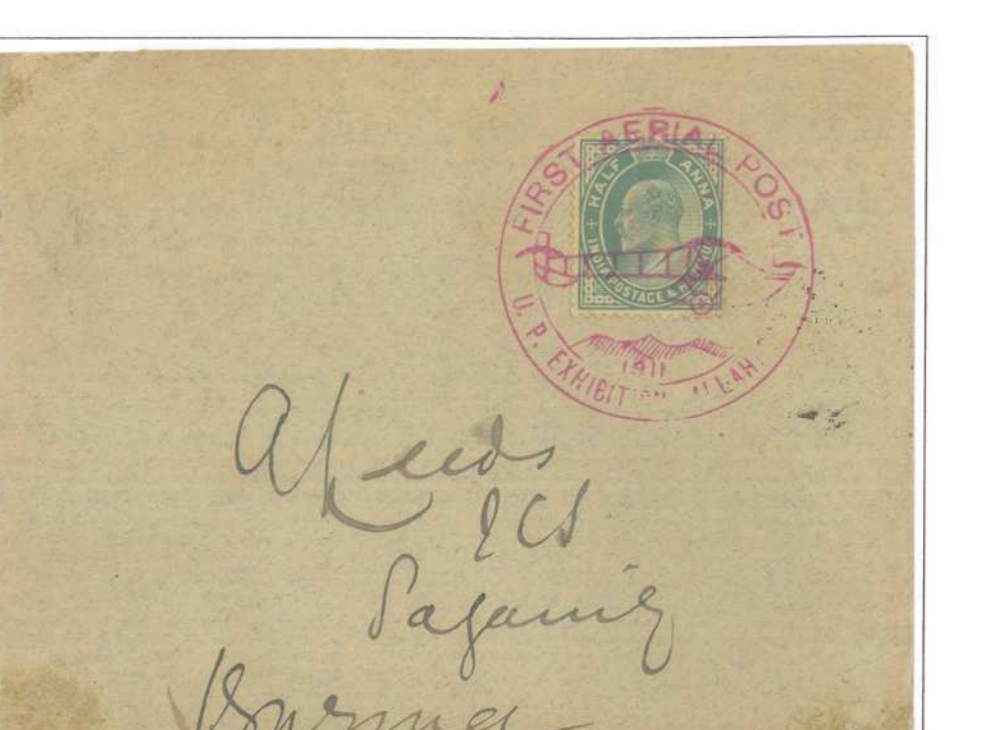 FIRST AERIAL POST
HALF ANNA
INDIA POSTAGE & REVENUE
1911
U. P. EXHIBITION ALLAHABAD
A Leeds
ICS
Sagaing
Burma